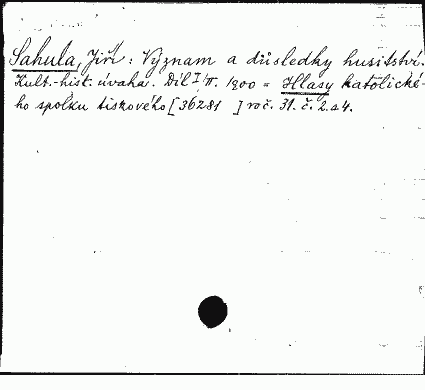 Sahula, Jiří: Význam a důsledky husitství.
Kult.-hist. úvaha. Díl I/II. 1900 = Hlasy katolické-
ho spolku tiskového [36281 ] roč. 31. č. 2.a4.